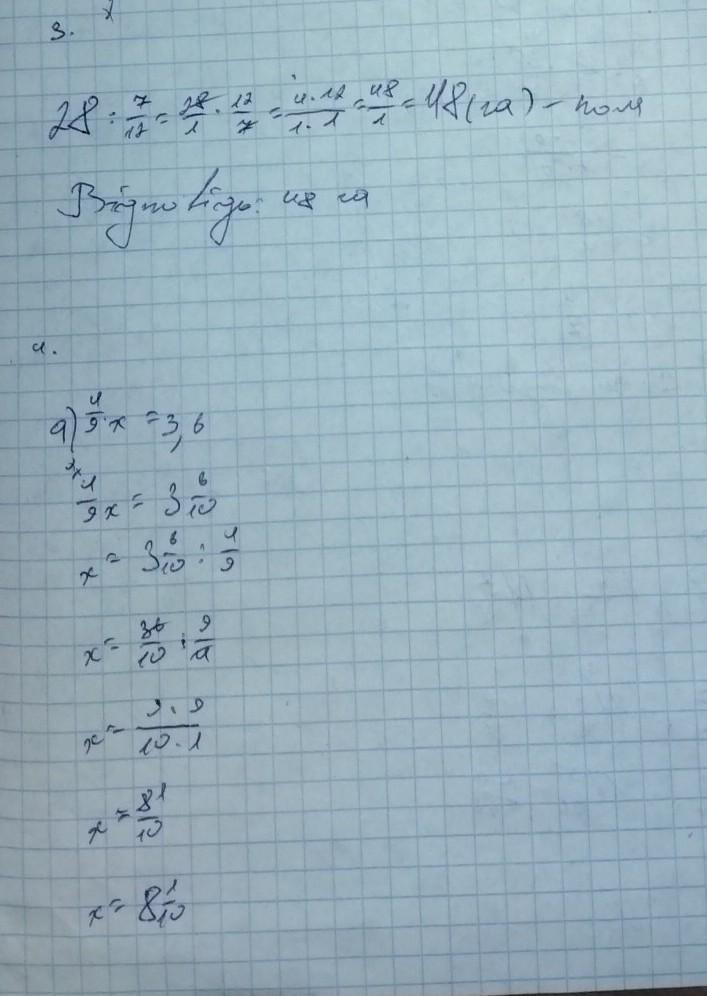 3.
28 : 7/12 = 28/1 · 12/7 = 4·12/1·1 = 48/1 = 48 (га) – поля
Відповідь: 48 га
4.
а) 4/9 x = 3,6
4/9 x = 3 6/10
x = 3 6/10 : 4/9
x = 36/10 : 9/4
x = 9·9/10·1
x = 81/10
x = 8 1/10